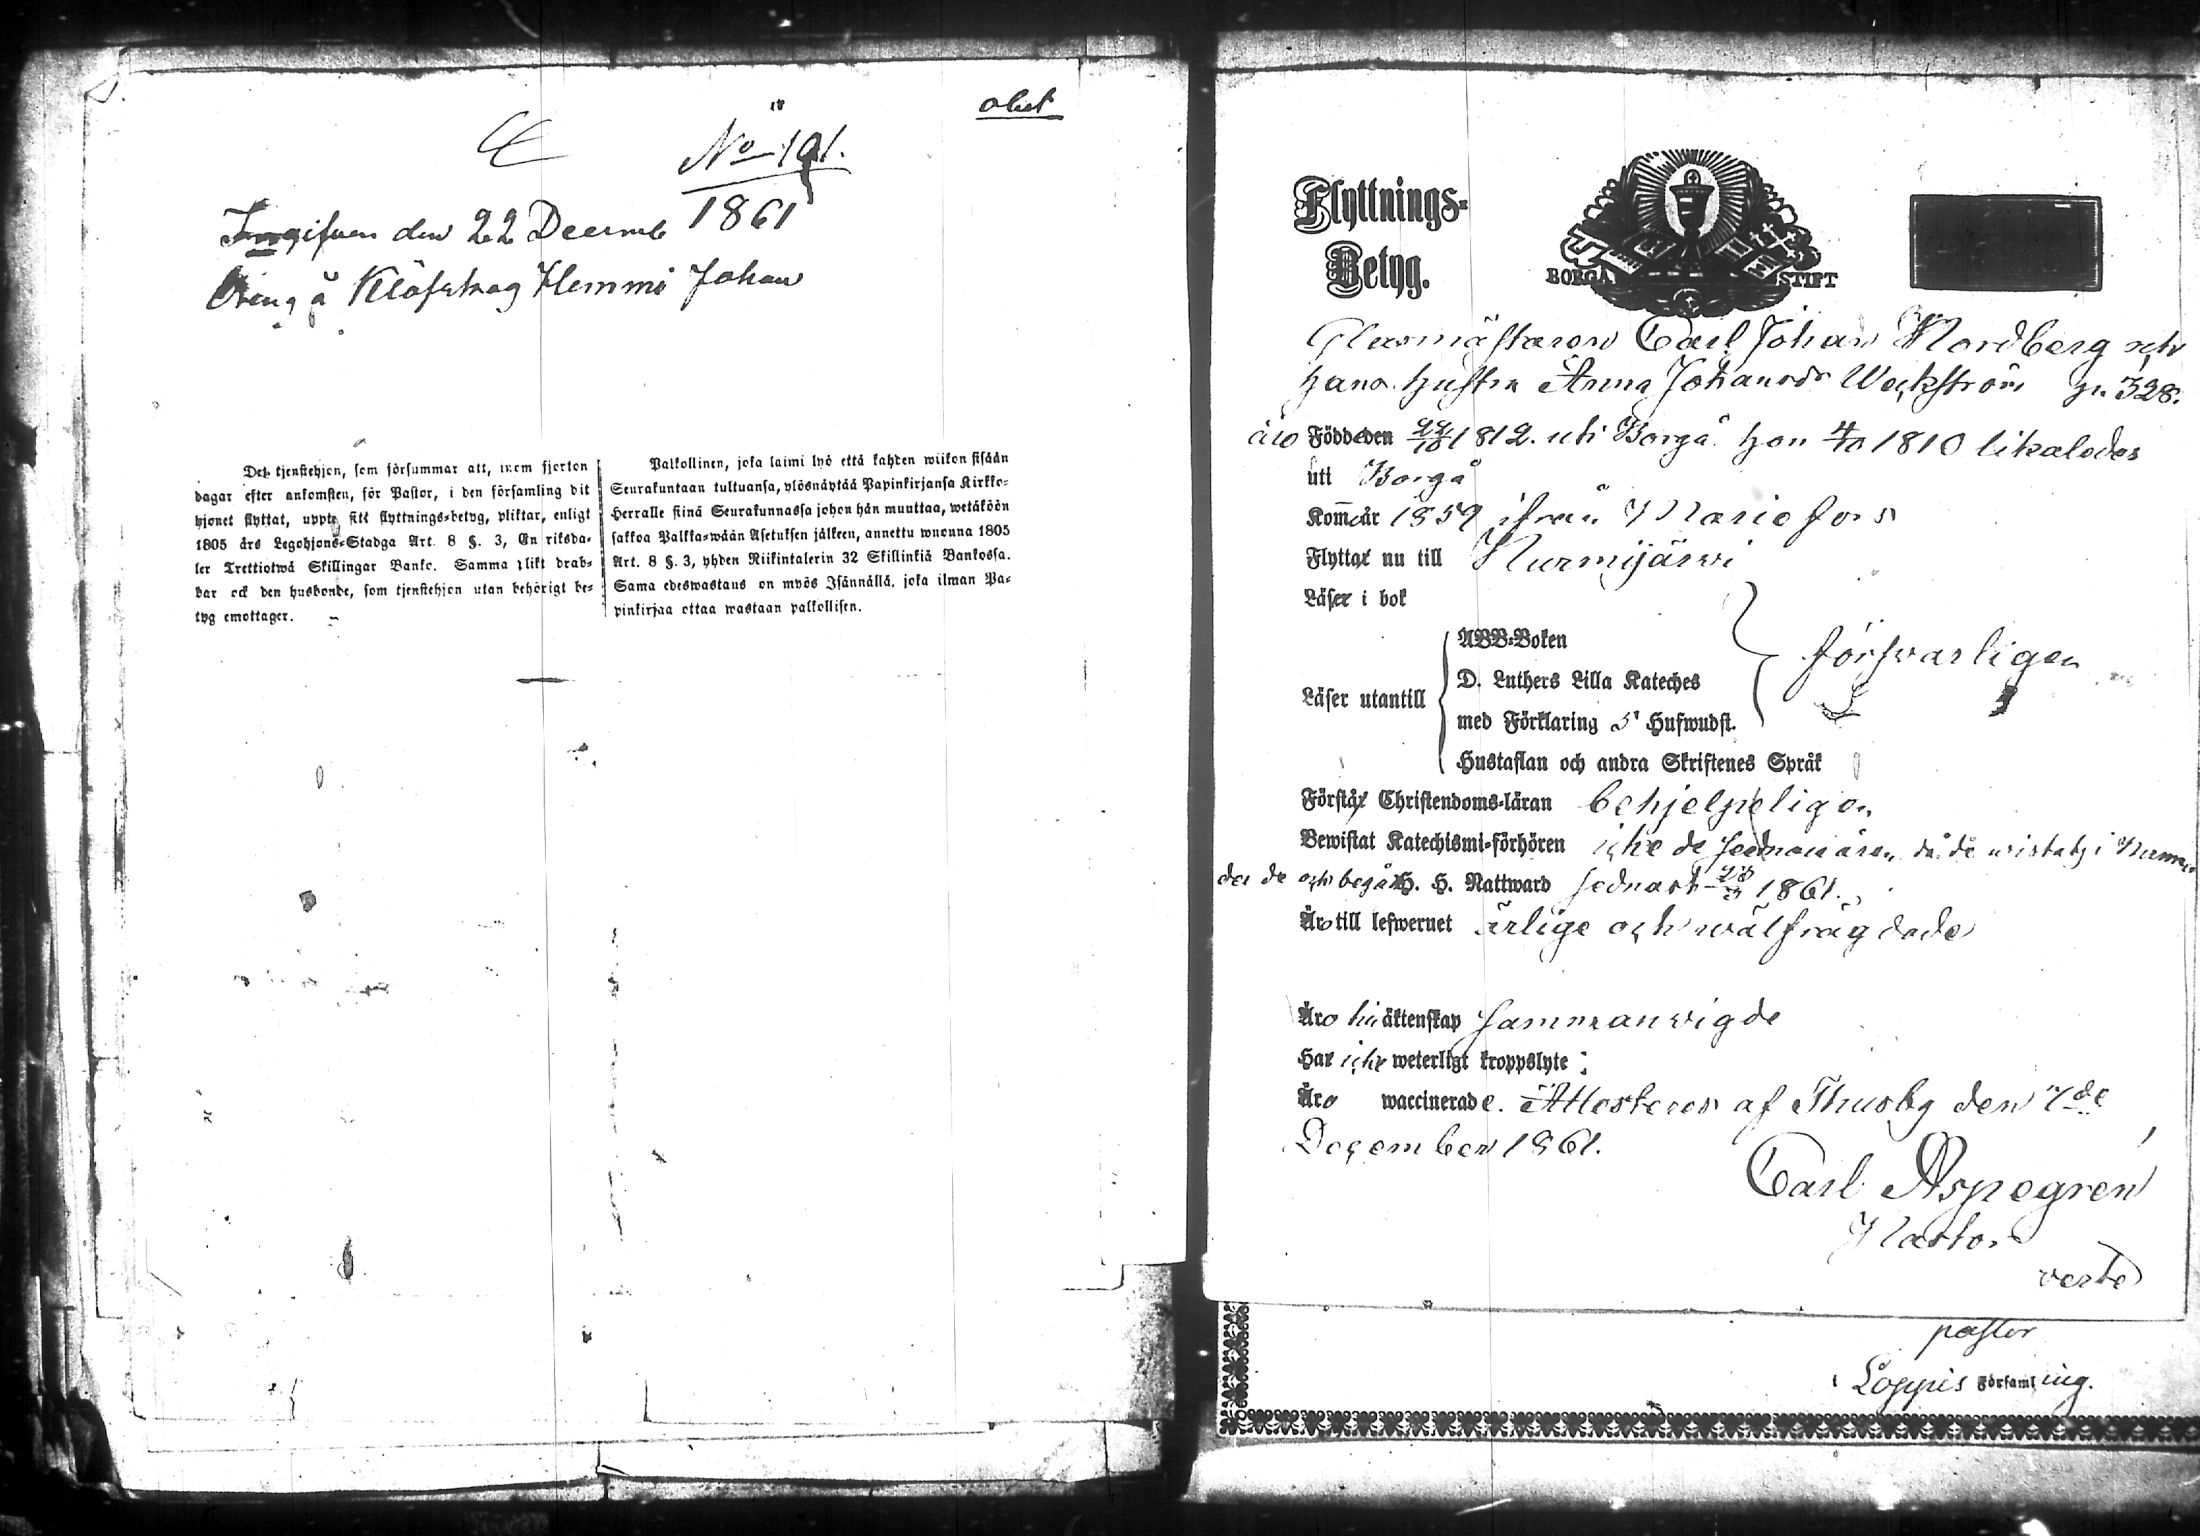 obet
No 191.
1861
Ingifven den 22 Decemb
Dreng å Klöfskog Hemmi Johan
Det tjenstehjon, som försummar att, inom fjorton
dagar efter ankomsten, för Pastor, i den församling dit
hjonet flyttat, uppte sitt flyttnings-betyg, pliktar, enligt
1805 års Legohjons-Stadga Art. 8 §. 3, En riksda-
ler Trettiotwå Skillingar Banko. Samma plikt drab-
bar ock den husbonde, som tjenstehjon utan behörigt be-
tyg emottager.
Palkollinen, joka laimi lyö että kahden wiikon sisään
Seurakuntaan tultuansa, ylösnäyttää Papinkirjansa Kirkko-
Herralle siinä Seurakunnassa johon hän muuttaa, wetäköön
sakkoa Palkka-wään Asetuksen jälkeen, annettu wuonna 1805
Art. 8 §. 3, yhden Riikintalerin 32 Skillinkiä Bankossa.
Sama edeswastaus on myös Isännällä, joka ilman Pa-
pinkirjaa ottaa wastaan palkollisen.
Flyttnings-
Betyg.
BORGÅ STIFT
Glasmästaren Carl Johan Nordberg och
hans hustru Anna Johansdr Weckström p. 328.
äro Födde den 22/10 1812. uti Borgå hon 4/10 1810 likaledes
uti Borgå
Kom år 1859 ifrån Mariefors
Flyttar nu till Nurmijärvi
Läser i bok
Läser utantill
ABB-Boken
D. Luthers Lilla Kateches
med Förklaring 5 Hufwudst.
Hustaflan och andra Skriftenes Språk
försvarligen
Förstår Christendoms-läran behjelpeligen
Bewistat Katechismi-förhören icke de sednare åren, då de wistats i
der de och begått H. H. Nattward sednast 1861.
Äro till lefwernet ärlige och wälfrägdade
Äro i äktenskap sammanvigde
Har icke weterligt kroppslyte;
Äro waccinerade. Attesteres af Thusby den 7de
December 1861.
Carl Aspegren
Pastor
verte
pastor
i Loppis Församling.